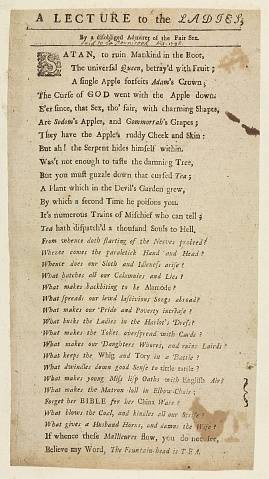 A LECTURE to the LADIES,
By a disobliged Admirer of the Fair Sex.
SATAN, to ruin Mankind in the Root,
The universal Queen, betray'd with Fruit;
A single Apple forfeits Adam's Crown;
The Curse of GOD went with the Apple down.
E'er since, that Sex, tho' fair, with charming Shapes,
Are Sodom's Apples, and Gommorrah's Grapes;
They have the Apple's ruddy Cheek and Skin:
But ah! the Serpent hides himself within.
Was't not enough to taste the damning Tree,
But you must guzzle down that cursed Tea;
A Plant which in the Devil's Garden grew,
By which a second Time he poisons you.
It's numerous Trains of Mischief who can tell;
Tea hath dispatch'd a thousand Souls to Hell,
From whence doth starting of the Nerves proceed?
Whence comes the paralytick Hand and Head?
Whence does our Sloth and Idleness arise?
What hatches all our Calumnies and Lies?
What makes backbiting to be Alamode?
What spreads our lewd lascivious Songs abroad?
What makes our Pride and Poverty increase?
What busks the Ladies in the Harlot's Dress?
What makes the Toilet overspread with Cards?
What makes our Daughters Whores, and ruins Lairds?
What keeps the Whig and Tory in a Battle?
What dwindles down good Sense to tittle tattle?
What makes young Miss lisp Oaths with English Air?
What makes the Matron loll in Elbow-Chair;
Forget her BIBLE for her China Ware?
What blows the Coal, and kindles all our Strife?
What gives a Husband Horns, and damns the Wife?
If whence these flow, you do not see,
Believe my Word, The Fountain-head is TEA.